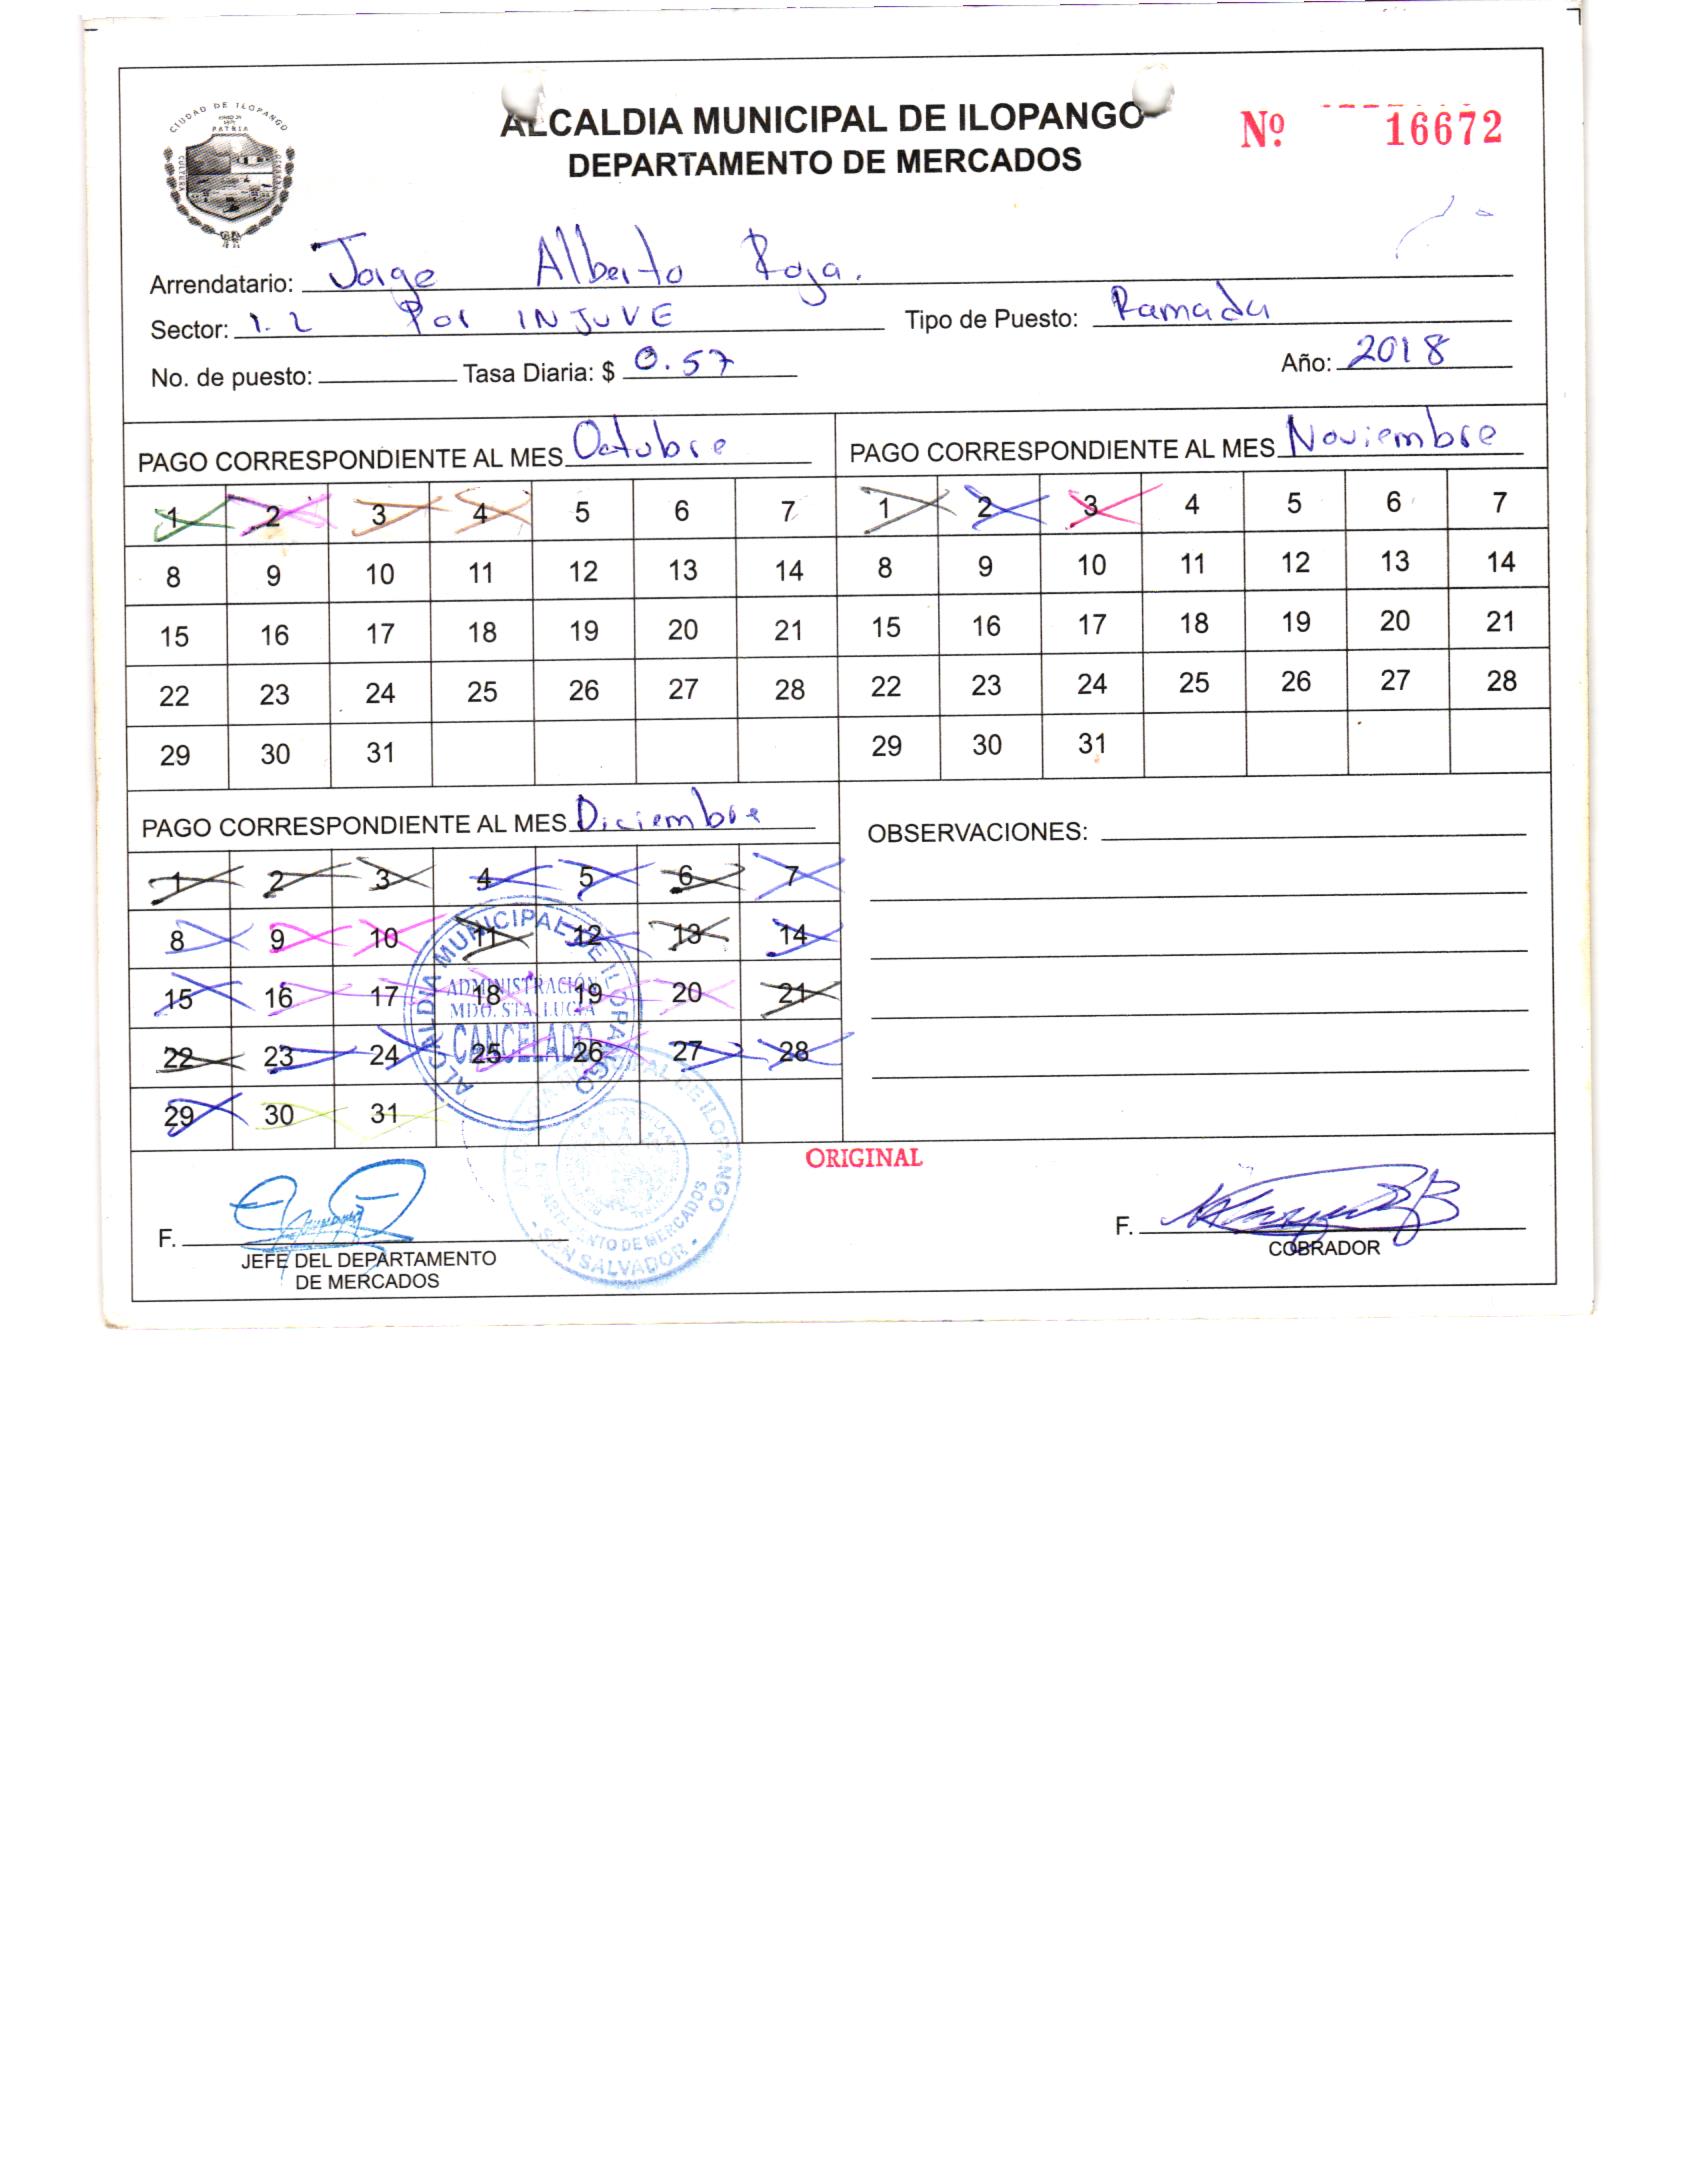 CIUDAD DE ILOPANGO
PATRIA
CULTURA
ALCALDIA MUNICIPAL DE ILOPANGO
DEPARTAMENTO DE MERCADOS
Nº 16672
Arrendatario: Jorge Alberto Roja.
Sector: 1.2 Por INJUVE Tipo de Puesto: Ramada
No. de puesto: Tasa Diaria: $ 0.57 Año: 2018
PAGO CORRESPONDIENTE AL MES Octubre
1 2 3 4 5 6 7
8 9 10 11 12 13 14
15 16 17 18 19 20 21
22 23 24 25 26 27 28
29 30 31
PAGO CORRESPONDIENTE AL MES Noviembre
1 2 3 4 5 6 7
8 9 10 11 12 13 14
15 16 17 18 19 20 21
22 23 24 25 26 27 28
29 30 31
PAGO CORRESPONDIENTE AL MES Diciembre
1 2 3 4 5 6 7
8 9 10 11 12 13 14
15 16 17 18 19 20 21
22 23 24 25 26 27 28
29 30 31
OBSERVACIONES:
ALCALDIA MUNICIPAL DE ILOPANGO
ADMINISTRACIÓN
MDO. STA. LUCIA
CANCELADO
MUNICIPAL DE ILOPANGO
DEPARTAMENTO DE MERCADOS
- SAN SALVADOR -
ORIGINAL
F.
JEFE DEL DEPARTAMENTO
DE MERCADOS
F.
COBRADOR